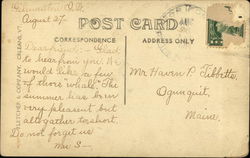 August 27.
POST CARD
CORRESPONDENCE
ADDRESS ONLY
Dear friend:- Glad
to hear from you. We
would like a few
of those "whale". The
summer has been
very pleasant but
altogether too short.
Do not forget us
Mr. S-
Mr Haven P. Tibbetts,
Ogunquit,
Maine.